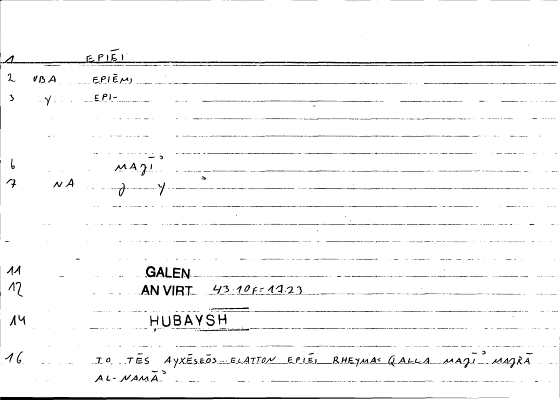 1 EPIĒI
2 NBA EPIĒM,
3 Y EPI-
6 MAǦĪʾ
7 NA Ǧ Y ʾ
11 GALEN
12 AN VIRT 43.10f=17.23
14 ḤUBAYSH
16 TO TĒS AYXĒSEŌS...ELATTON EPIĒI RHEYMA: QALLA MAǦĪʾ MAǦRĀ
AL-NAMĀʾ